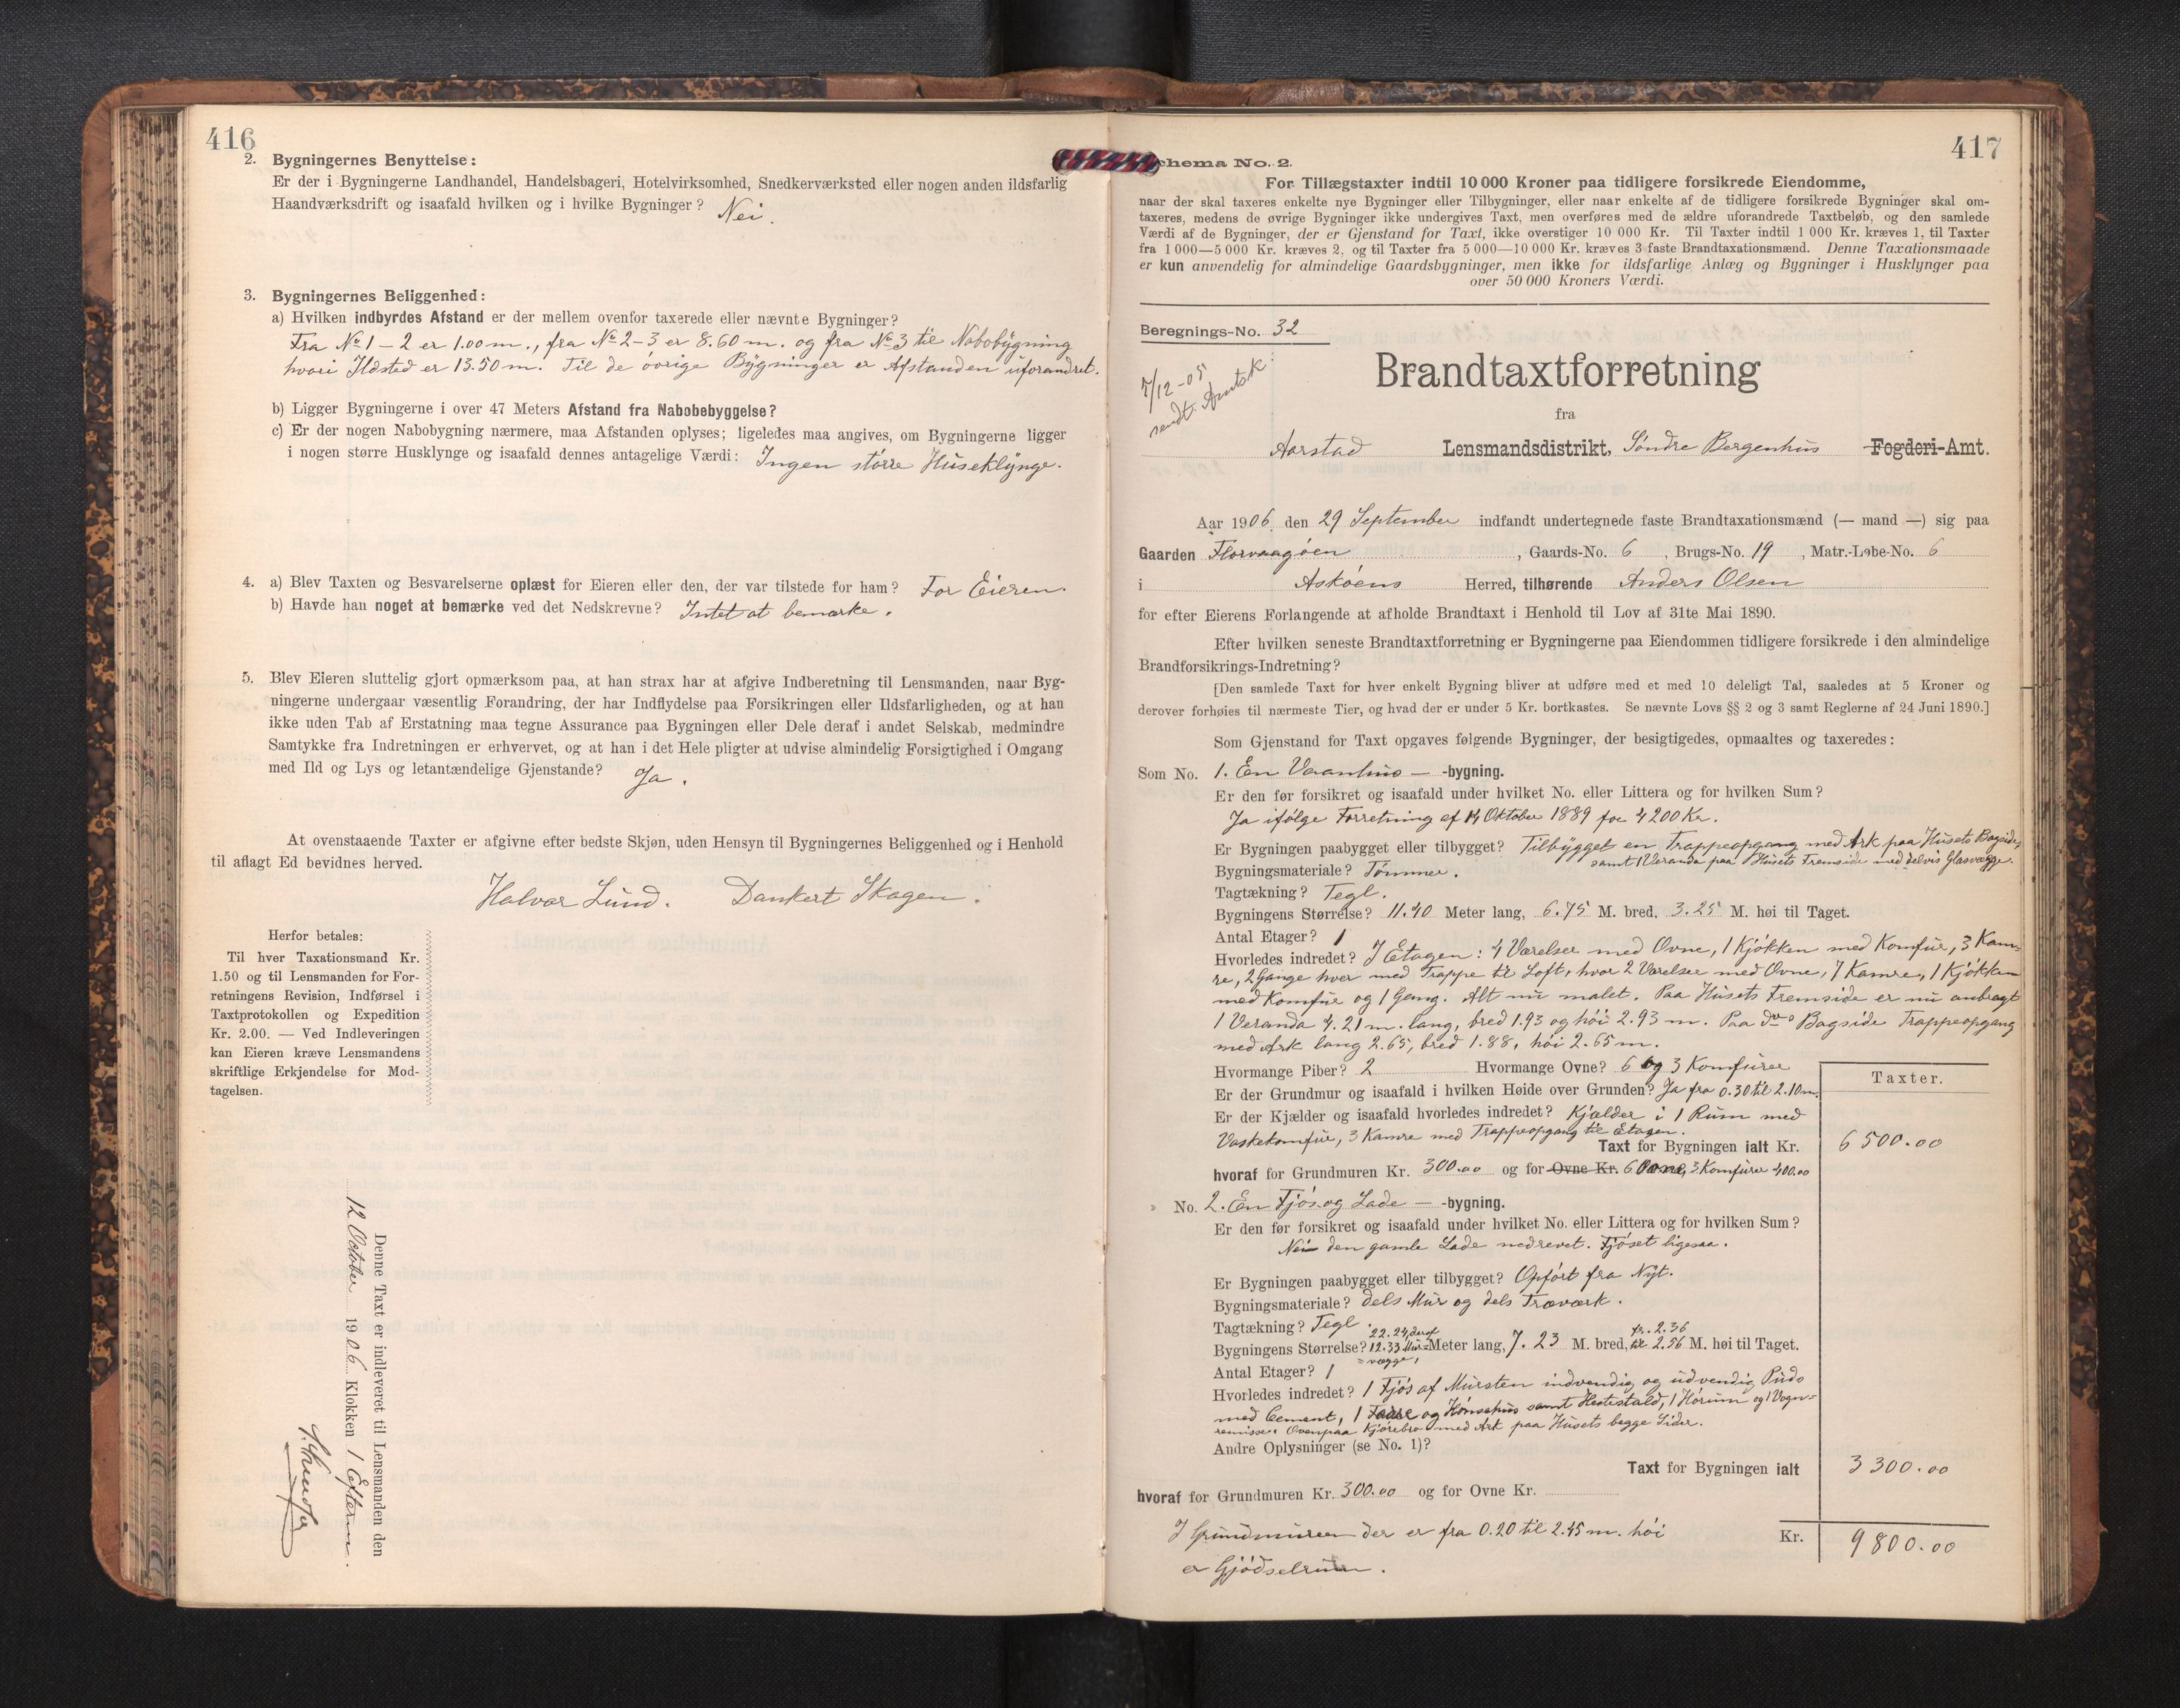 416
2. Bygningernes Benyttelse:
Er der i Bygningerne Landhandel, Handelsbageri, Hotelvirksomhed, Snedkerværksted eller nogen anden ildsfarlig
Haandværksdrift og isaafald hvilken og i hvilke Bygninger? Nei.
3. Bygningernes Beliggenhed:
a) Hvilken indbyrdes Afstand er der mellem ovenfor taxerede eller nævnte Bygninger?
Fra No 1 – 2 er 1.00 m., fra No 2–3 er 8.60 m. og fra No 3 til Nabobygning
hvori Ildsted er 13.50 m. Til de övrige Bygninger er Afstanden uforandret.
b) Ligger Bygningerne i over 47 Meters Afstand fra Nabobebyggelse?
c) Er der nogen Nabobygning nærmere, maa Afstanden oplyses; ligeledes maa angives, om Bygningerne ligger
i nogen større Husklynge og isaafald dennes antagelige Værdi: Ingen större Huseklynge.
4. a) Blev Taxten og Besvarelserne oplæst for Eieren eller den, der var tilstede for ham? For Eieren.
b) Havde han noget at bemærke ved det Nedskrevne? Intet at bemærke.
5. Blev Eieren sluttelig gjort opmærksom paa, at han strax har at afgive Indberetning til Lensmanden, naar Byg-
ningerne undergaar væsentlig Forandring, der har Indflydelse paa Forsikringen eller Ildsfarligheden, og at han
ikke uden Tab af Erstatning maa tegne Assurance paa Bygningen eller Dele deraf i andet Selskab, medmindre
Samtykke fra Indretningen er erhvervet, og at han i det Hele pligter at udvise almindelig Forsigtighed i Omgang
med Ild og Lys og letantændelige Gjenstande? Ja.
At ovenstaaende Taxter er afgivne efter bedste Skjøn, uden Hensyn til Bygningernes Beliggenhed og i Henhold
til aflagt Ed bevidnes herved.
Halvor Lund. Dankert Skagen.
Herfor betales:
Til hver Taxationsmand Kr.
1.50 og til Lensmanden for For-
retningens Revision, Indførsel i
Taxtprotokollen og Expedition
Kr. 2.00. — Ved Indleveringen
kan Eieren kræve Lensmandens
skriftlige Erkjendelse for Mod-
tagelsen.
Denne Taxt er indleveret til Lensmanden den
12 October 1906 Klokken 1 Efterm.
417
chema No. 2.
For Tillægstaxter indtil 10 000 Kroner paa tidligere forsikrede Eiendomme,
naar der skal taxeres enkelte nye Bygninger eller Tilbygninger, eller naar enkelte af de tidligere forsikrede Bygninger skal om-
taxeres, medens de øvrige Bygninger ikke undergives Taxt, men overføres med de ældre uforandrede Taxtbeløb, og den samlede
Værdi af de Bygninger, der er Gjenstand for Taxt, ikke overstiger 10 000 Kr. Til Taxter indtil 1 000 Kr. kræves 1, til Taxter
fra 1 000—5 000 Kr. kræves 2, og til Taxter fra 5 000—10 000 Kr. kræves 3 faste Brandtaxationsmænd. Denne Taxationsmaade
er kun anvendelig for almindelige Gaardsbygninger, men ikke for ildsfarlige Anlæg og Bygninger i Husklynger paa
over 50 000 Kroners Værdi.
Beregnings-No. 32
7/12-05
sendt Amtsk
Brandtaxtforretning
fra
Aarstad Lensmandsdistrikt, Söndre Bergenhus Fogderi-Amt.
Aar 1906 den 29 September indfandt undertegnede faste Brandtaxationsmænd (— mand —) sig paa
Gaarden Florvaagöen, Gaards-No. 6, Brugs-No. 19, Matr.-Løbe-No. 6
i Asköens Herred, tilhørende Anders Olsen
for efter Eierens Forlangende at afholde Brandtaxt i Henhold til Lov af 31te Mai 1890.
Efter hvilken seneste Brandtaxtforretning er Bygningerne paa Eiendommen tidligere forsikrede i den almindelige
Brandforsikrings-Indretning?
[Den samlede Taxt for hver enkelt Bygning bliver at udføre med et med 10 deleligt Tal, saaledes at 5 Kroner og
derover forhøies til nærmeste Tier, og hvad der er under 5 Kr. bortkastes. Se nævnte Lovs §§ 2 og 3 samt Reglerne af 24 Juni 1890.]
Som Gjenstand for Taxt opgaves følgende Bygninger, der besigtigedes, opmaaltes og taxeredes:
Som No. 1. En Vaanhus — -bygning.
Er den før forsikret og isaafald under hvilket No. eller Littera og for hvilken Sum?
Ja ifölge Forretning af 14 Oktober 1889 for 4200 Kr.
Er Bygningen paabygget eller tilbygget? Tilbygget en Trappeopgang med Ark paa Husets Bagside,
samt 1 Veranda paa Husets Fremside med delvis Glasvægge.
Bygningsmateriale? Tömmer.
Tagtækning? Tegl.
Bygningens Størrelse? 11.40 Meter lang, 6.75 M. bred, 3.25 M. høi til Taget.
Antal Etager? 1
Hvorledes indredet? I Etagen: 4 Værelser med Ovne, 1 Kjökken med Komfur, 3 Kam-
re, 2 Gange hver med Trappe til Loft, hvor 2 Værelser med Ovne, 7 Kamre, 1 Kjökken
med Komfur og 1 Gang. Alt nu malet. Paa Husets Fremside er nu anbragt
1 Veranda 4.21 m. lang, bred 1.93 og höi 2.93 m. Paa do Bagside Trappeopgang
med Ark lang 2.65, bred 1.88, höi 2.65 m.
Hvormange Piber? 2 Hvormange Ovne? 6 og 3 Komfurer
Taxter.
Er der Grundmur og isaafald i hvilken Høide over Grunden? Ja fra 0.30 til 2.10 m.
Er der Kjælder og isaafald hvorledes indredet? Kjælder i 1 Rum med
Vaskekomfur, 3 Kamre med Trappeopgang til Etagen.
Taxt for Bygningen ialt Kr. 6500.00
hvoraf for Grundmuren Kr. 300.00 og for Ovne Kr. 6 Ovne, 3 Komfurer 400.00
No. 2. En Fjös og Lade — -bygning.
Er den før forsikret og isaafald under hvilket No. eller Littera og for hvilken Sum?
Nei den gamle Lade nedrevet. Fjöset ligesaa.
Er Bygningen paabygget eller tilbygget? Opfört fra Nyt.
Bygningsmateriale? dels Mur og dels Træværk.
Tagtækning? Tegl.
22.24, deraf fr. 2.36
Bygningens Størrelse? 12.33 Mur= Meter lang, 7.23 M. bred, til 2.56 M. høi til Taget.
=vægge,
Antal Etager? 1
Hvorledes indredet? 1 Fjös af Mursten indvendig og udvendig Puds
med Cement, 1 og Hönsehus samt Hestestald, 1 Hörum og 1 Vogn=
remisse. Ovenpaa Kjörebro med Ark paa Husets begge Sider.
Andre Oplysninger (se No. 1)?
Taxt for Bygningen ialt 3300.00
hvoraf for Grundmuren Kr. 300.00 og for Ovne Kr.
I Grundmuren der er fra 0.20 til 2.45 m. höi
er Gjödselrum.
Kr. 9800.00